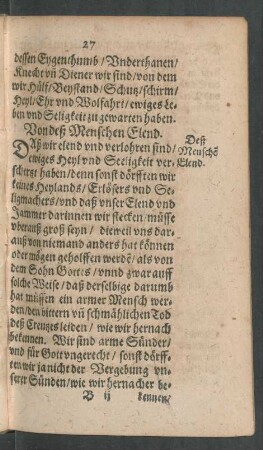 27
dessen Eygenthumb / Vnderthanen /
Knecht vñ Diener wir sind / von dem
wir Hülf / Beystand / Schutz / schirm /
Heyl / Ehr vnd Wolfahrt / ewiges Le-
ben vnd Seligkeit zu gewarten haben.
Von deß Menschen Elend.
Daß wir elend vnd verlohren sind /
ewiges Heyl vnd Seeligkeit ver-
schertzt haben / denn sonst dörfften wir
keines Heylands / Erlösers vnd Se-
ligmachers / vnd daß vnser Elend vnd
Jammer darinnen wir stecken / müsse
vberauß groß seyn / dieweil vns dar-
auß von niemand anders hat können
oder mögen geholffen werdē / als von
dem Sohn Gottes / vnnd zwar auff
solche Weise / daß derselbige darumb
hat müssen ein armer Mensch wer-
den / den bittern vñ schmählichen Tod
deß Creutzes leiden / wie wir hernach
bekennen. Wir sind arme Sünder /
vnd für Gott vngerecht / sonst dörff-
ten wir ja nicht der Vergebung vn-
serer Sünden / wie wir hernacher be-
B ij kennen /
Deß
Menschē
Elend.